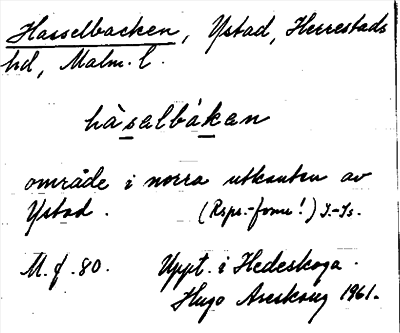 Hasselbacken, Ystad, Herrestads
hd, Malm. l.
hàsalbákan
område i norra utkanten av
Ystad. (Rsps.-form!) I.-Is.
M. f. 80. Uppt. i Hedeskoga.
Hugo Areskoug 1961.